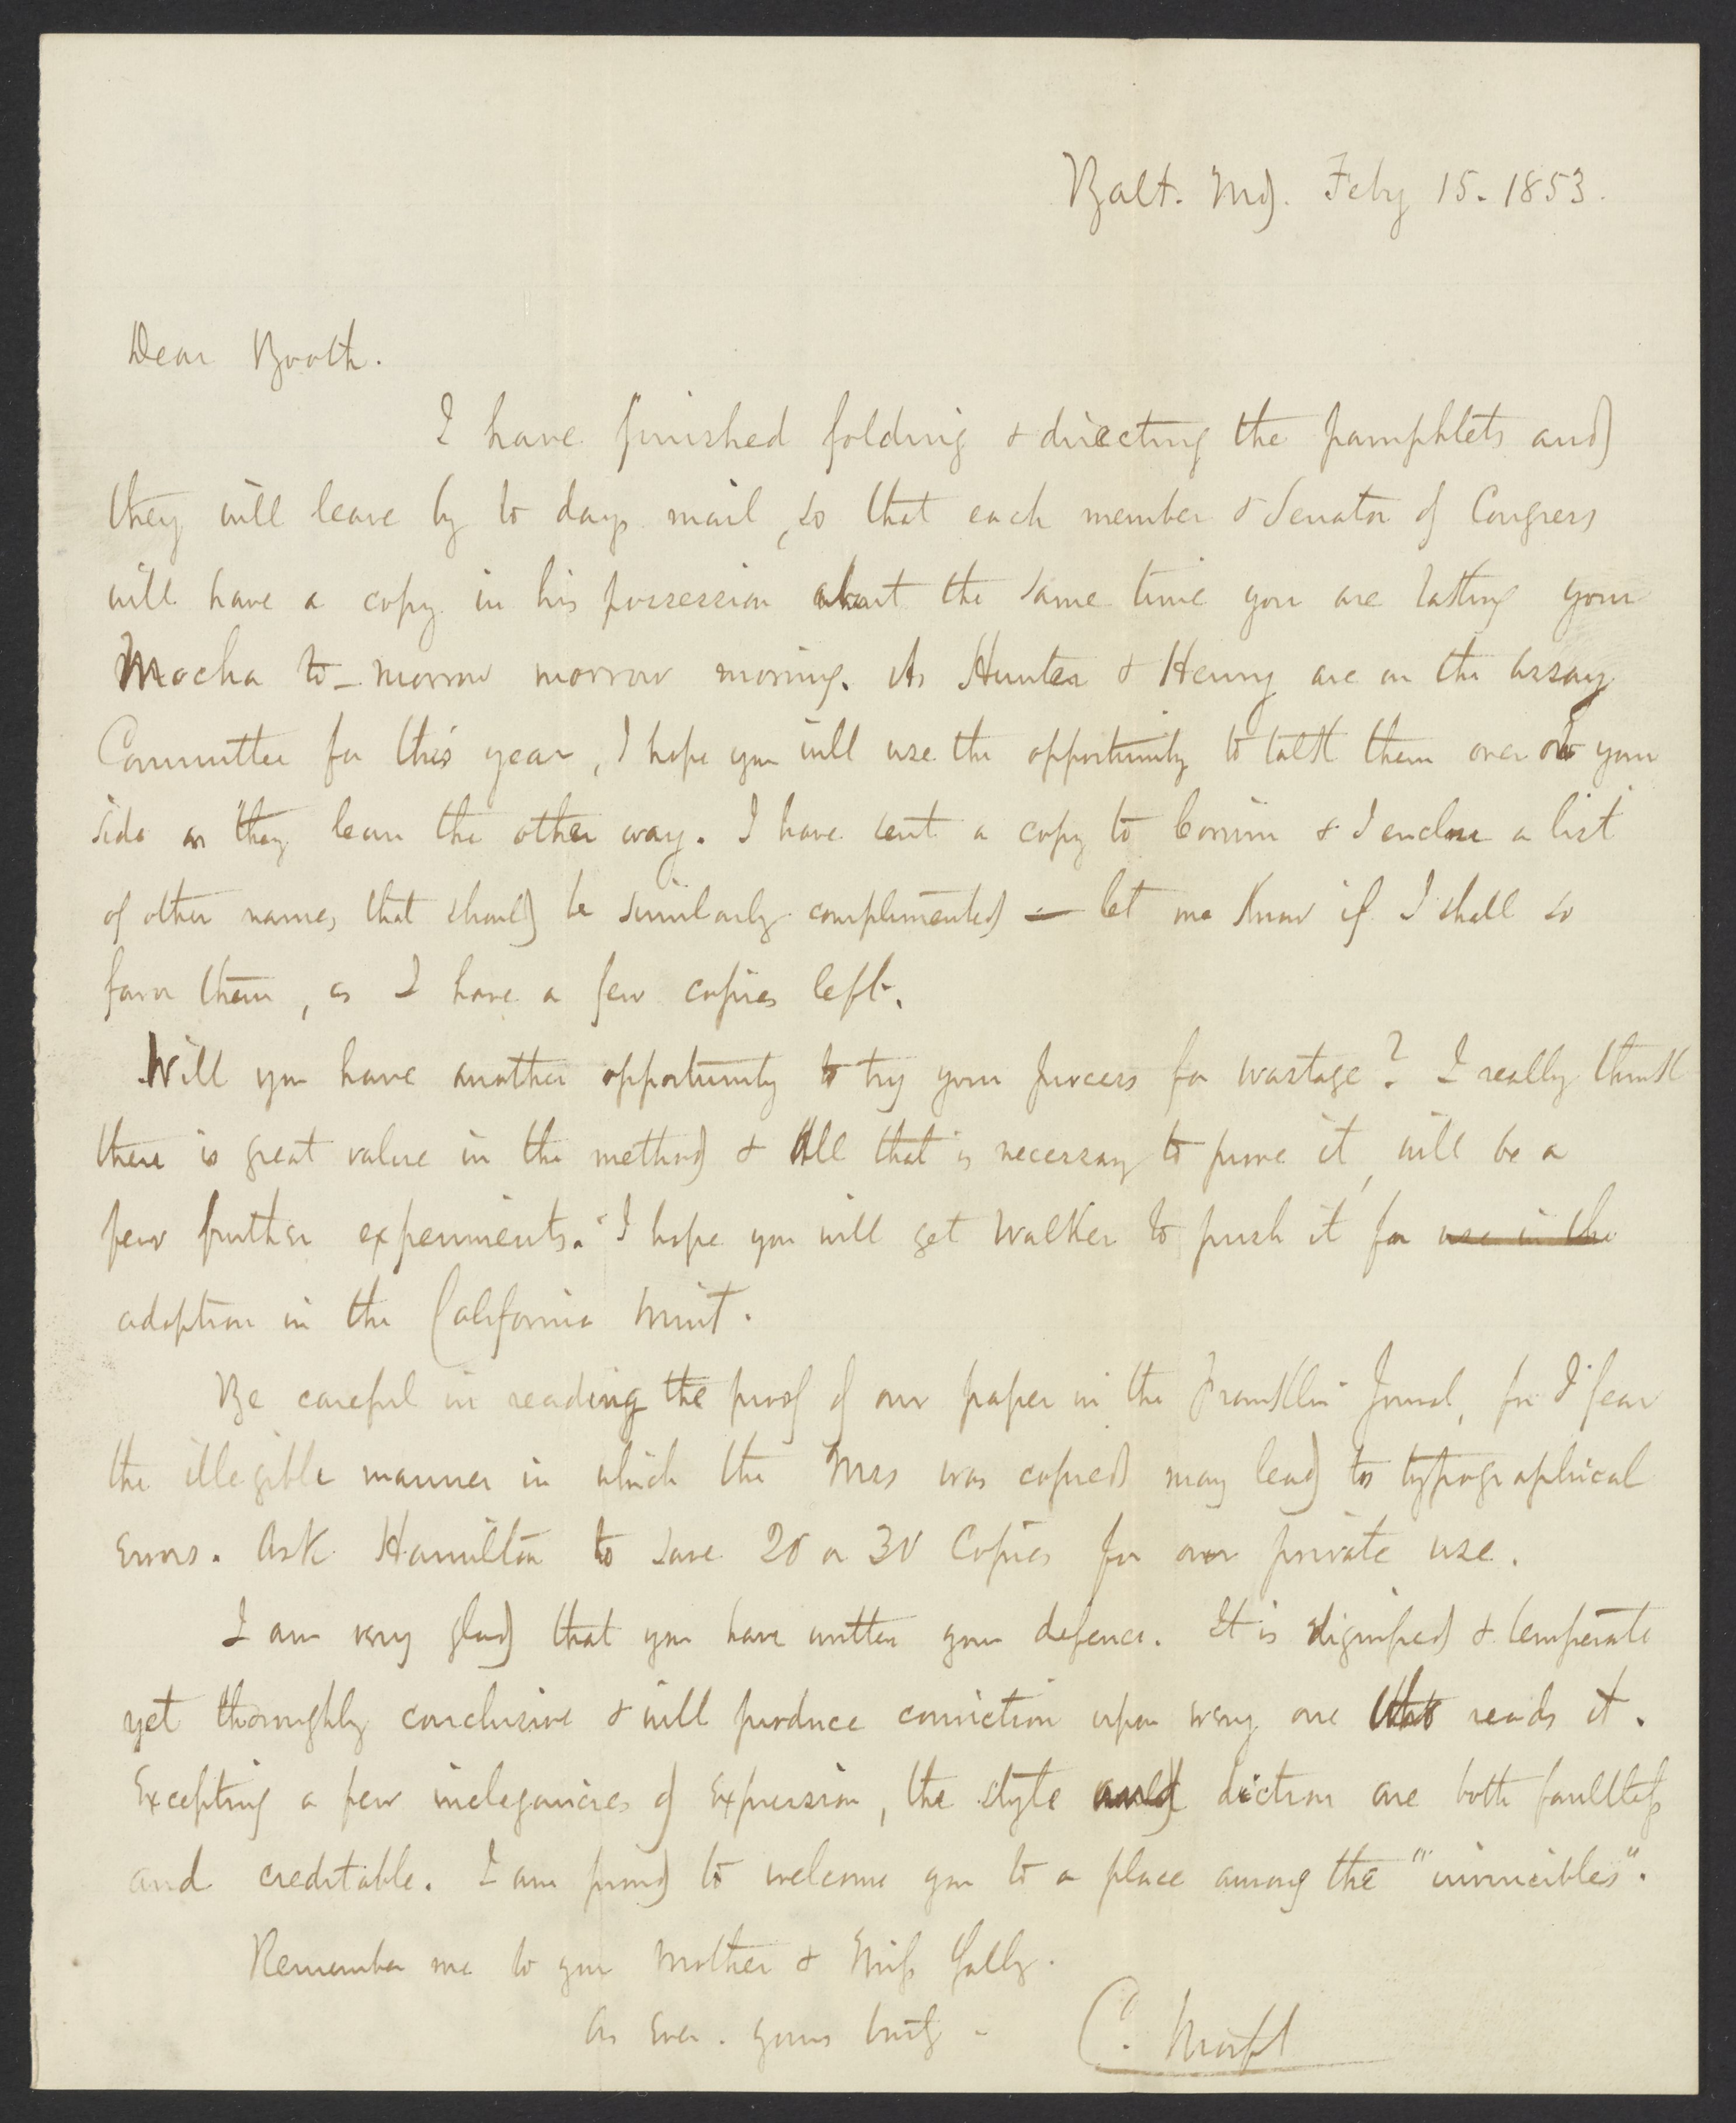 Balt. Md. Feby 15. 1853.
Dear Booth.
I have finished folding & directing the pamphlets and
they will leave by to days mail, so that each member & Senator of Congress
will have a copy in his possession about the same time you are tasting your
Mocha to-morrow morrow morning. As Hunter & Henry are on the assay
Committee for this year, I hope you will use the opportunity to talk them over to your
side as they lean the other way. I have sent a copy to & I enclose a list
of other names that should be similarly complimented — let me know if I shall so
favor them, as I have a few copies left.
Will you have another opportunity to try your process for wastage? I really think
there is great value in the method & all that is necessary to prove it, will be a
few further experiments. I hope you will get Walker to push it for use in the
adoption in the California Mint.
Be careful in reading the proof of our paper in the Franklin Journal, for I fear
the illegible manner in which the Mss was copied may lead to typographical
errors. Ask Hamilton to save 20 or 30 Copies for our private use.
I am very glad that you have written your defence. It is dignified & temperate
yet thoroughly conclusive & will produce conviction upon every one that reads it.
Excepting a few inelegancies of expression, the style and diction are both faultless
and creditable. I am proud to welcome you to a place among the "invincibles".
Remember me to your Mother & Miss Sally.
As Ever. yours truly -
C. Morfit